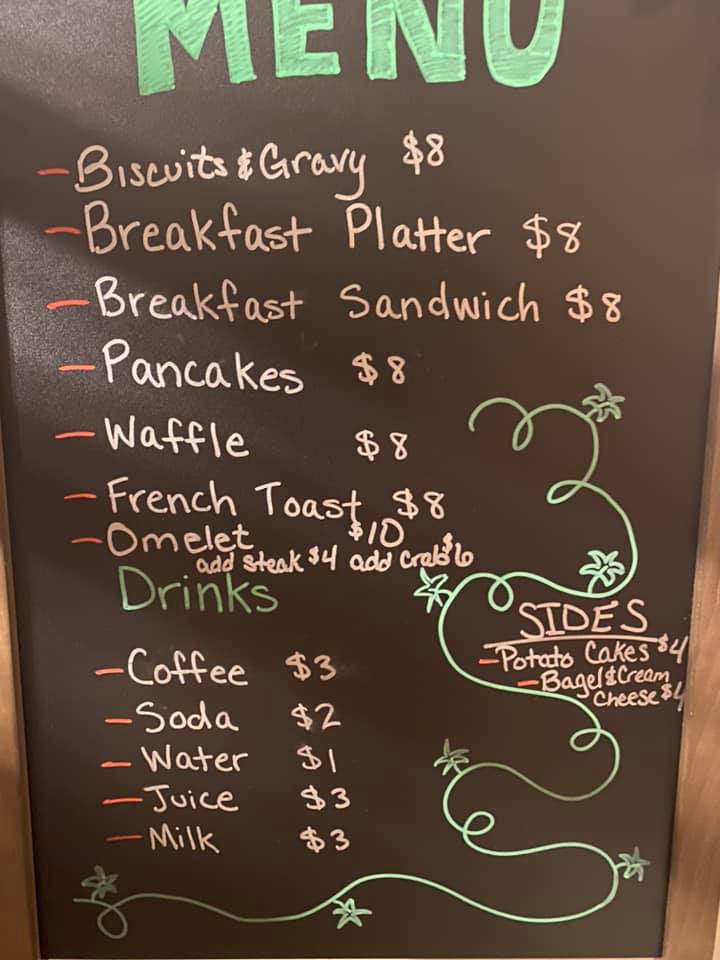 MENU
- Biscuits & Gravy $8
- Breakfast Platter $8
- Breakfast Sandwich $8
- Pancakes $8
- Waffle $8
- French Toast $8
- Omelet $10
add steak $4 add Crab $6
Drinks
- Coffee $3
- Soda $2
- Water $1
- Juice $3
- Milk $3
SIDES
- Potato Cakes $4
- Bagel & Cream
Cheese $4